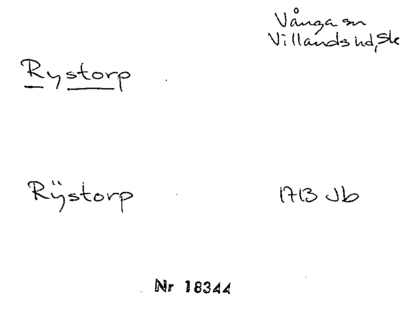 Vånga sn
Villands hd, Sk
Rystorp
Rÿstorp
1713 Jb
Nr 18344